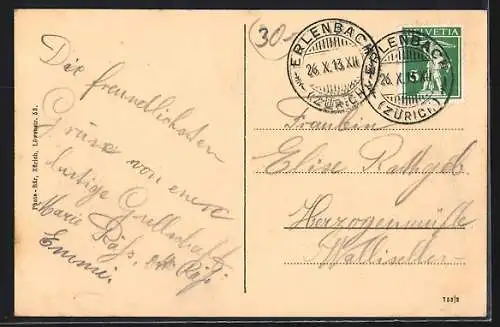 30.-
ERLENBACH
26. X. 13. XII
(ZÜRICH)
ERLENBACH
26. X. 13. XII
(ZÜRICH)
HELVETIA
5
Die freundlichsten
Grüsse von einer
lustige Gesellschaft
Marie Räss,
Emmi.
Photo-Bär, Zürich, Löwenstr. 53.
Fräulein
Elise Rathgeb
Herzogenmühle
Wallisellen
753/3